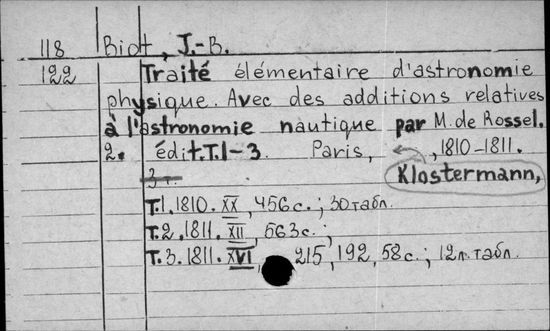 118 Biot, J.-B.
122 Traité élémentaire d'astronomie
physique. Avec des additions relatives
à l'astronomie nautique par M. de Rossel.
2. édit. T.1-3. Paris, , 1810-1811.
3 т. Klostermann,
T.1. 1810. XX, 456 с.; 30 табл.
T.2. 1811. XII, 563 с.;
T.3. 1811. XVI, 215, 192, 58 с.; 12 л. табл.